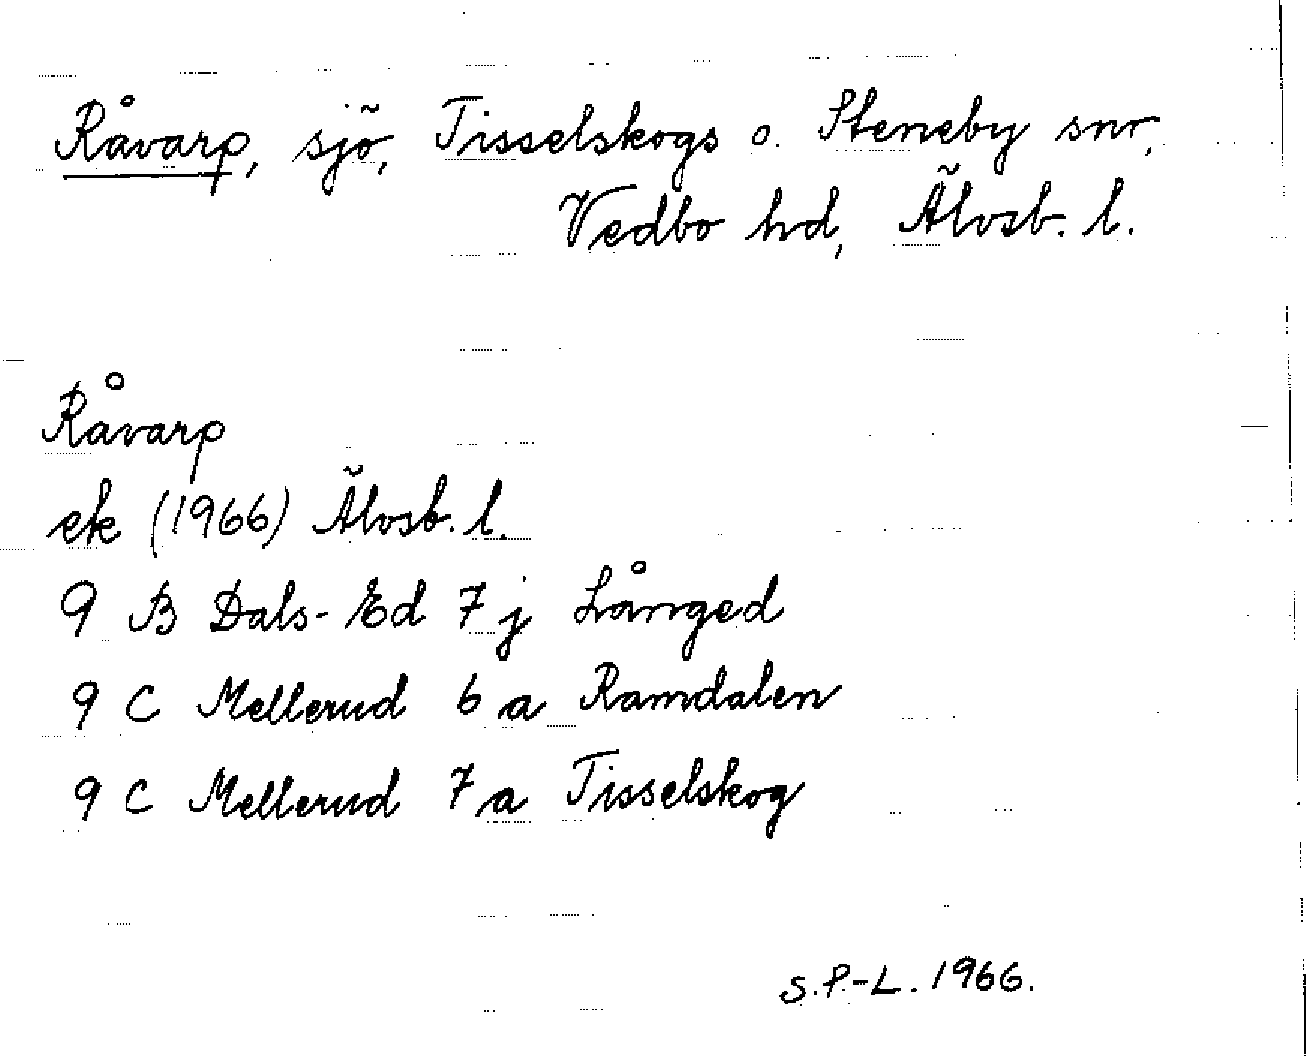 Råvarp, sjö, Tisselskogs o. Steneby snr,
Vedbo hd, Älvsb. l.
Råvarp
ek (1966) Älvsb. l.
9 B Dals-Ed 7 j Långed
9 C Mellerud 6 a Ramdalen
9 C Mellerud 7 a Tisselskog
S.P.-L. 1966.